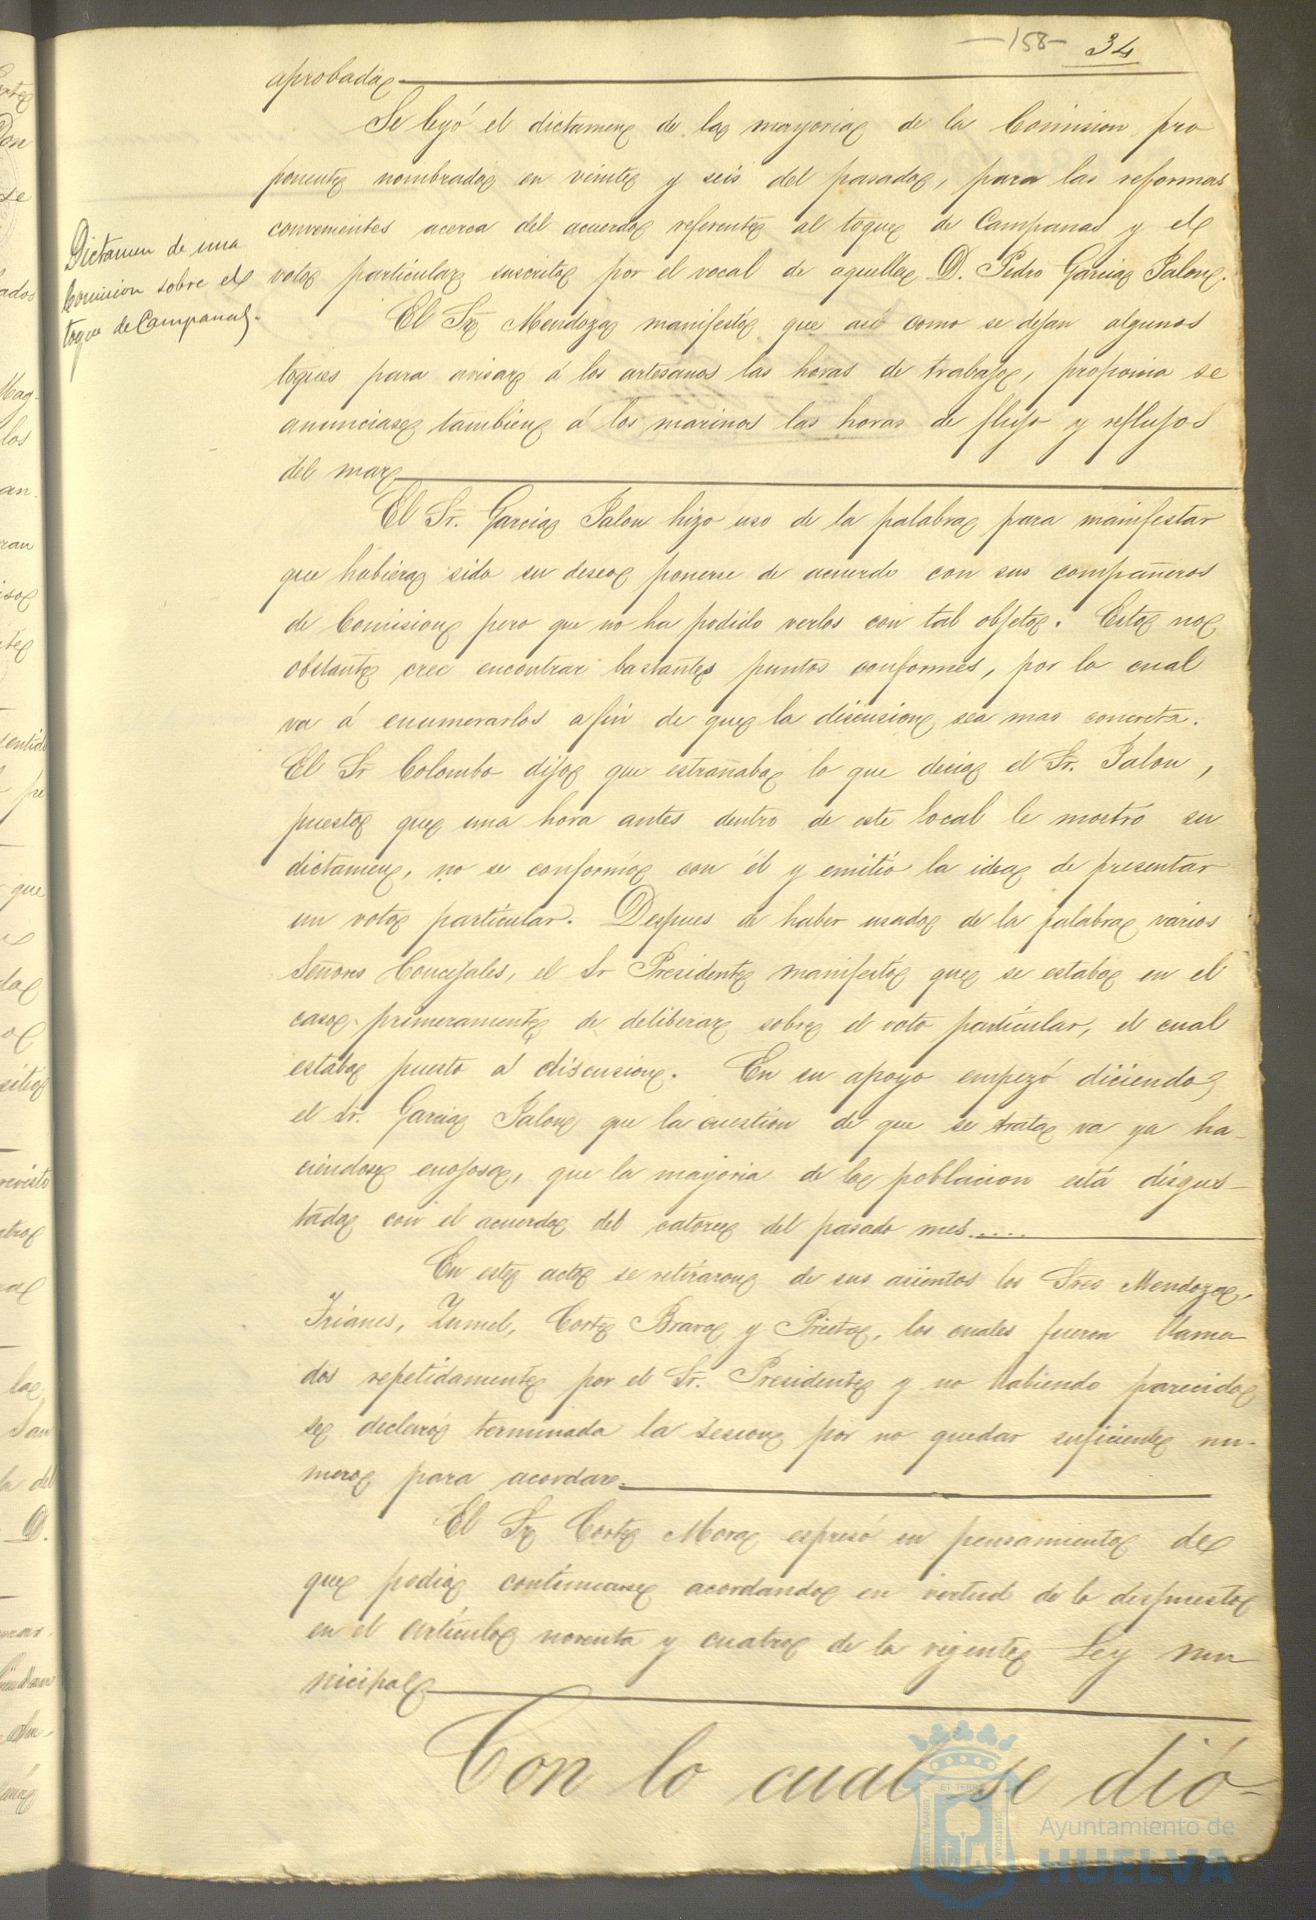 -158- 34
aprobada
Se leyó el dictamen de la mayoria de la Comision pro
ponente nombrada en veinte y seis del pasado, para las reformas
convenientes acerca del acuerdo referente al toque de Campanas y el
voto particular suscrito por el vocal de aquella D. Pedro Garcia Jalon.
Dictamen de una
Comision sobre el
toque de Campanas.
El Sr Mendoza manifestó que asi como se dejan algunos
toques para avisar á los artesanos las horas de trabajo, proponia se
anunciase tambien á los marinos las horas de flujo y reflujos
del mar
El Sr. Garcia Jalon hizo uso de la palabra para manifestar
que hubiera sido su deseo ponerse de acuerdo con sus compañeros
de Comision pero que no ha podido verlos con tal objeto. Esto no
obstante cree encontrar bastantes puntos conformes, por lo cual
va á enumerarlos afin de que la discusion sea mas concreta.
El Sr Colombo dijo que estrañaba lo que decia el Sr. Jalon,
puesto que una hora antes dentro de este local le mostró su
dictamen, no se conformó con él y emitió la idea de presentar
un voto particular. Despues de haber usado de la palabra varios
Señores Concejales, el Sr Presidente manifestó que se estaba en el
caso primeramente de deliberar sobre el voto particular, el cual
estaba puesto á discusion. En su apoyo empezó diciendo
el Sr. Garcia Jalon que la cuestion de que se trata va ya ha-
ciendose enojosa, que la mayoria de la poblacion está disgus-
tada con el acuerdo del catorce del pasado mes.....
En este acto se retiraron de sus asientos los Sres Mendoza,
Trianes, Zumel, Corte Bravo y Prieto, los cuales fueron llama
dos repetidamente por el Sr. Presidente y no habiendo parecido
se declaró terminada la sesion por no quedar suficiente nu-
mero para acordar.
El Sr Corte Mora espresó su pensamiento de
que podia continuarse acordando en virtud de lo dispuesto
en el artículo noventa y cuatro de la vigente Ley mu
nicipal
Con lo cual se dió
Ayuntamiento de
HUELVA